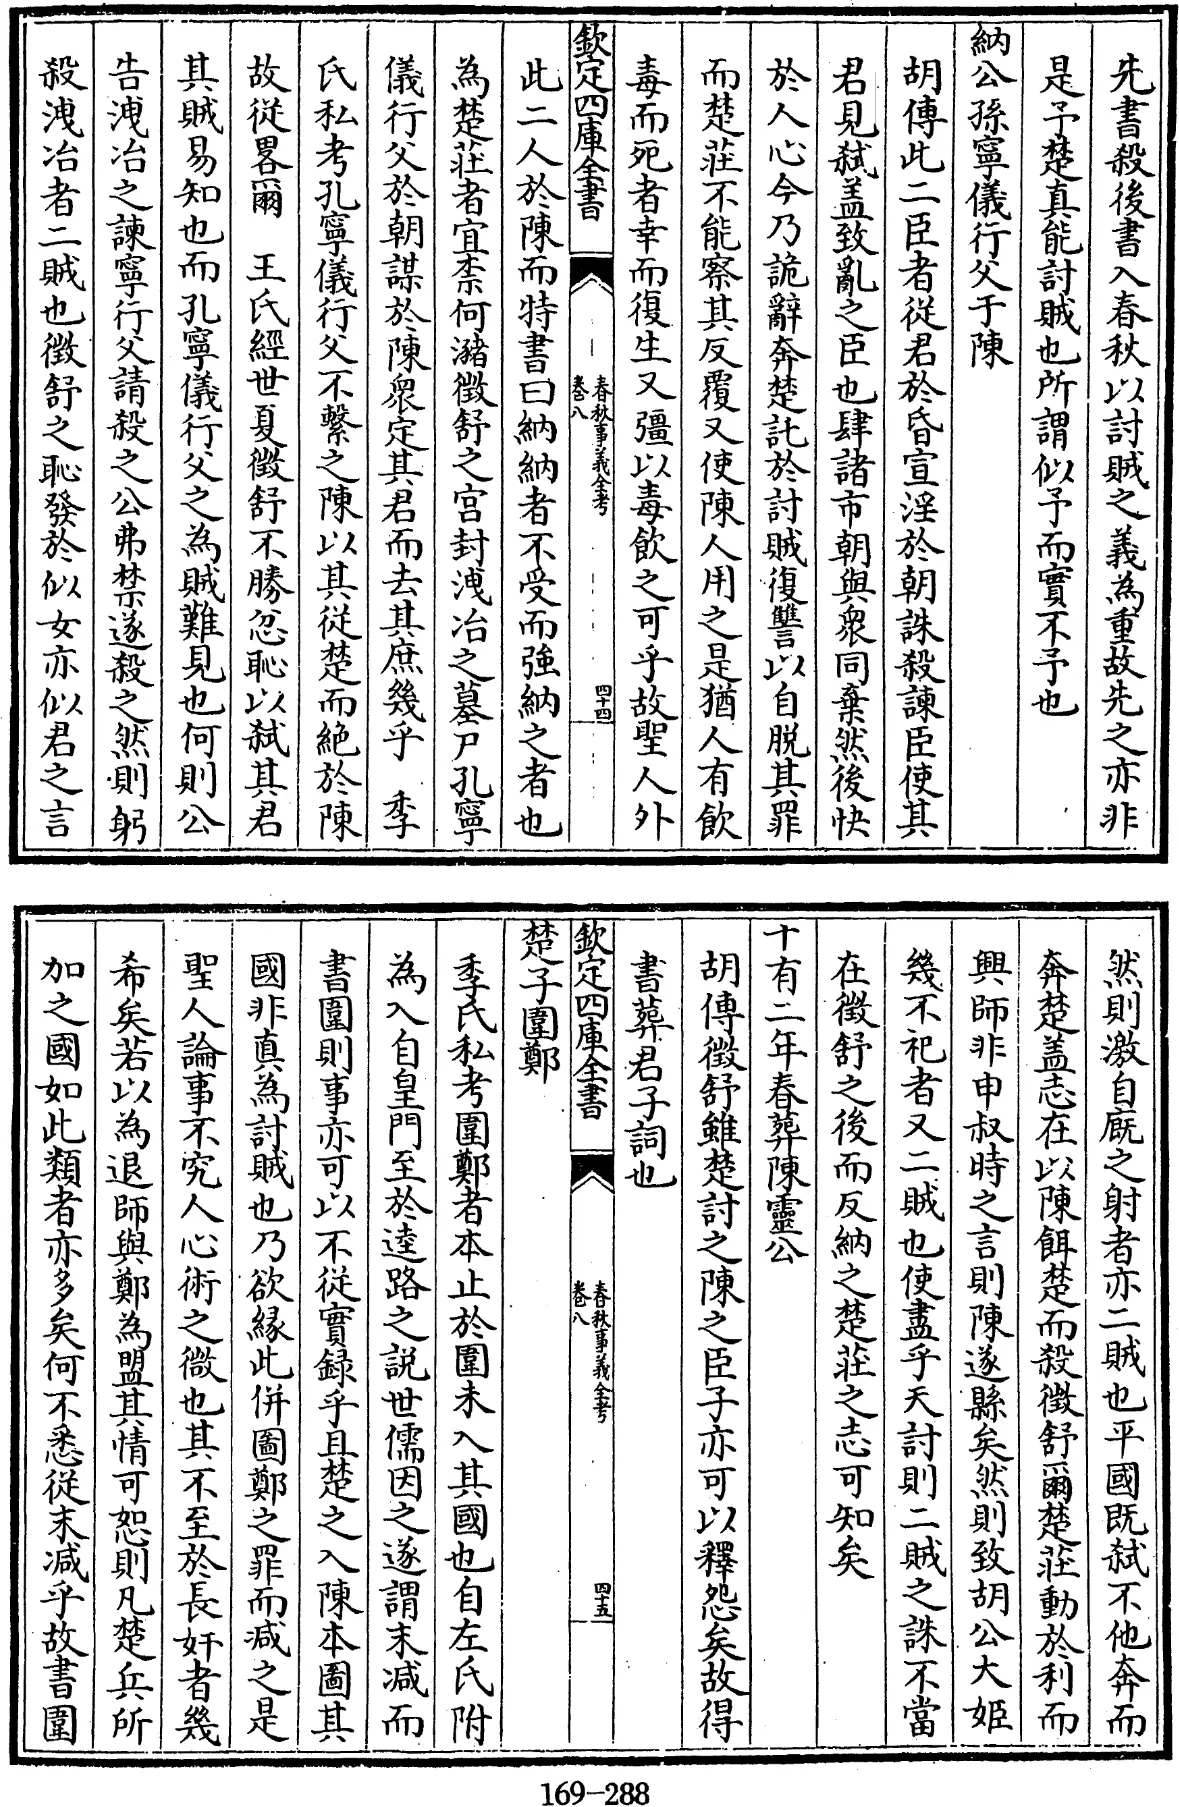 先書殺後書入春秋以討賊之義為重故先之亦非
是予楚真能討賊也所謂似予而實不予也
納公孫寧儀行父于陳
胡傳此二臣者從君於昏宣淫於朝誅殺諫臣使其
君見弑盖致亂之臣也肆諸市朝與衆同棄然後快
於人心今乃詭辭奔楚託於討賊復讐以自脱其罪
而楚莊不能察其反覆又使陳人用之是猶人有飲
毒而死者幸而復生又彊以毒飲之可乎故聖人外
欽定四庫全書
春秋事義全考
卷八
四十四
此二人於陳而特書曰納納者不受而強納之者也
為楚莊者宜柰何瀦徵舒之宫封洩冶之墓尸孔寧
儀行父於朝謀於陳衆定其君而去其庶幾乎 季
氏私考孔寧儀行父不繫之陳以其從楚而絶於陳
故從畧爾 王氏經世夏徵舒不勝忿恥以弑其君
其賊易知也而孔寧儀行父之為賊難見也何則公
告洩冶之諫寧行父請殺之公弗禁遂殺之然則躬
殺洩冶者二賊也徵舒之恥發於似女亦似君之言
然則激自廐之射者亦二賊也平國既弑不他奔而
奔楚盖志在以陳餌楚而殺徵舒爾楚莊動於利而
興師非申叔時之言則陳遂縣矣然則致胡公大姬
幾不祀者又二賊也使盡乎天討則二賊之誅不當
在徵舒之後而反納之楚莊之志可知矣
十有二年春葬陳靈公
胡傳徵舒雖楚討之陳之臣子亦可以釋怨矣故得
書葬君子詞也
欽定四庫全書
春秋事義全考
卷八
四十五
楚子圍鄭
季氏私考圍鄭者本止於圍未入其國也自左氏附
為入自皇門至於逵路之説世儒因之遂謂末減而
書圍則事亦可以不從實録乎且楚之入陳本圖其
國非真為討賊也乃欲縁此併圖鄭之罪而減之是
聖人論事不究人心術之微也其不至於長奸者幾
希矣若以為退師與鄭為盟其情可恕則凡楚兵所
加之國如此類者亦多矣何不悉從末減乎故書圍
169-288